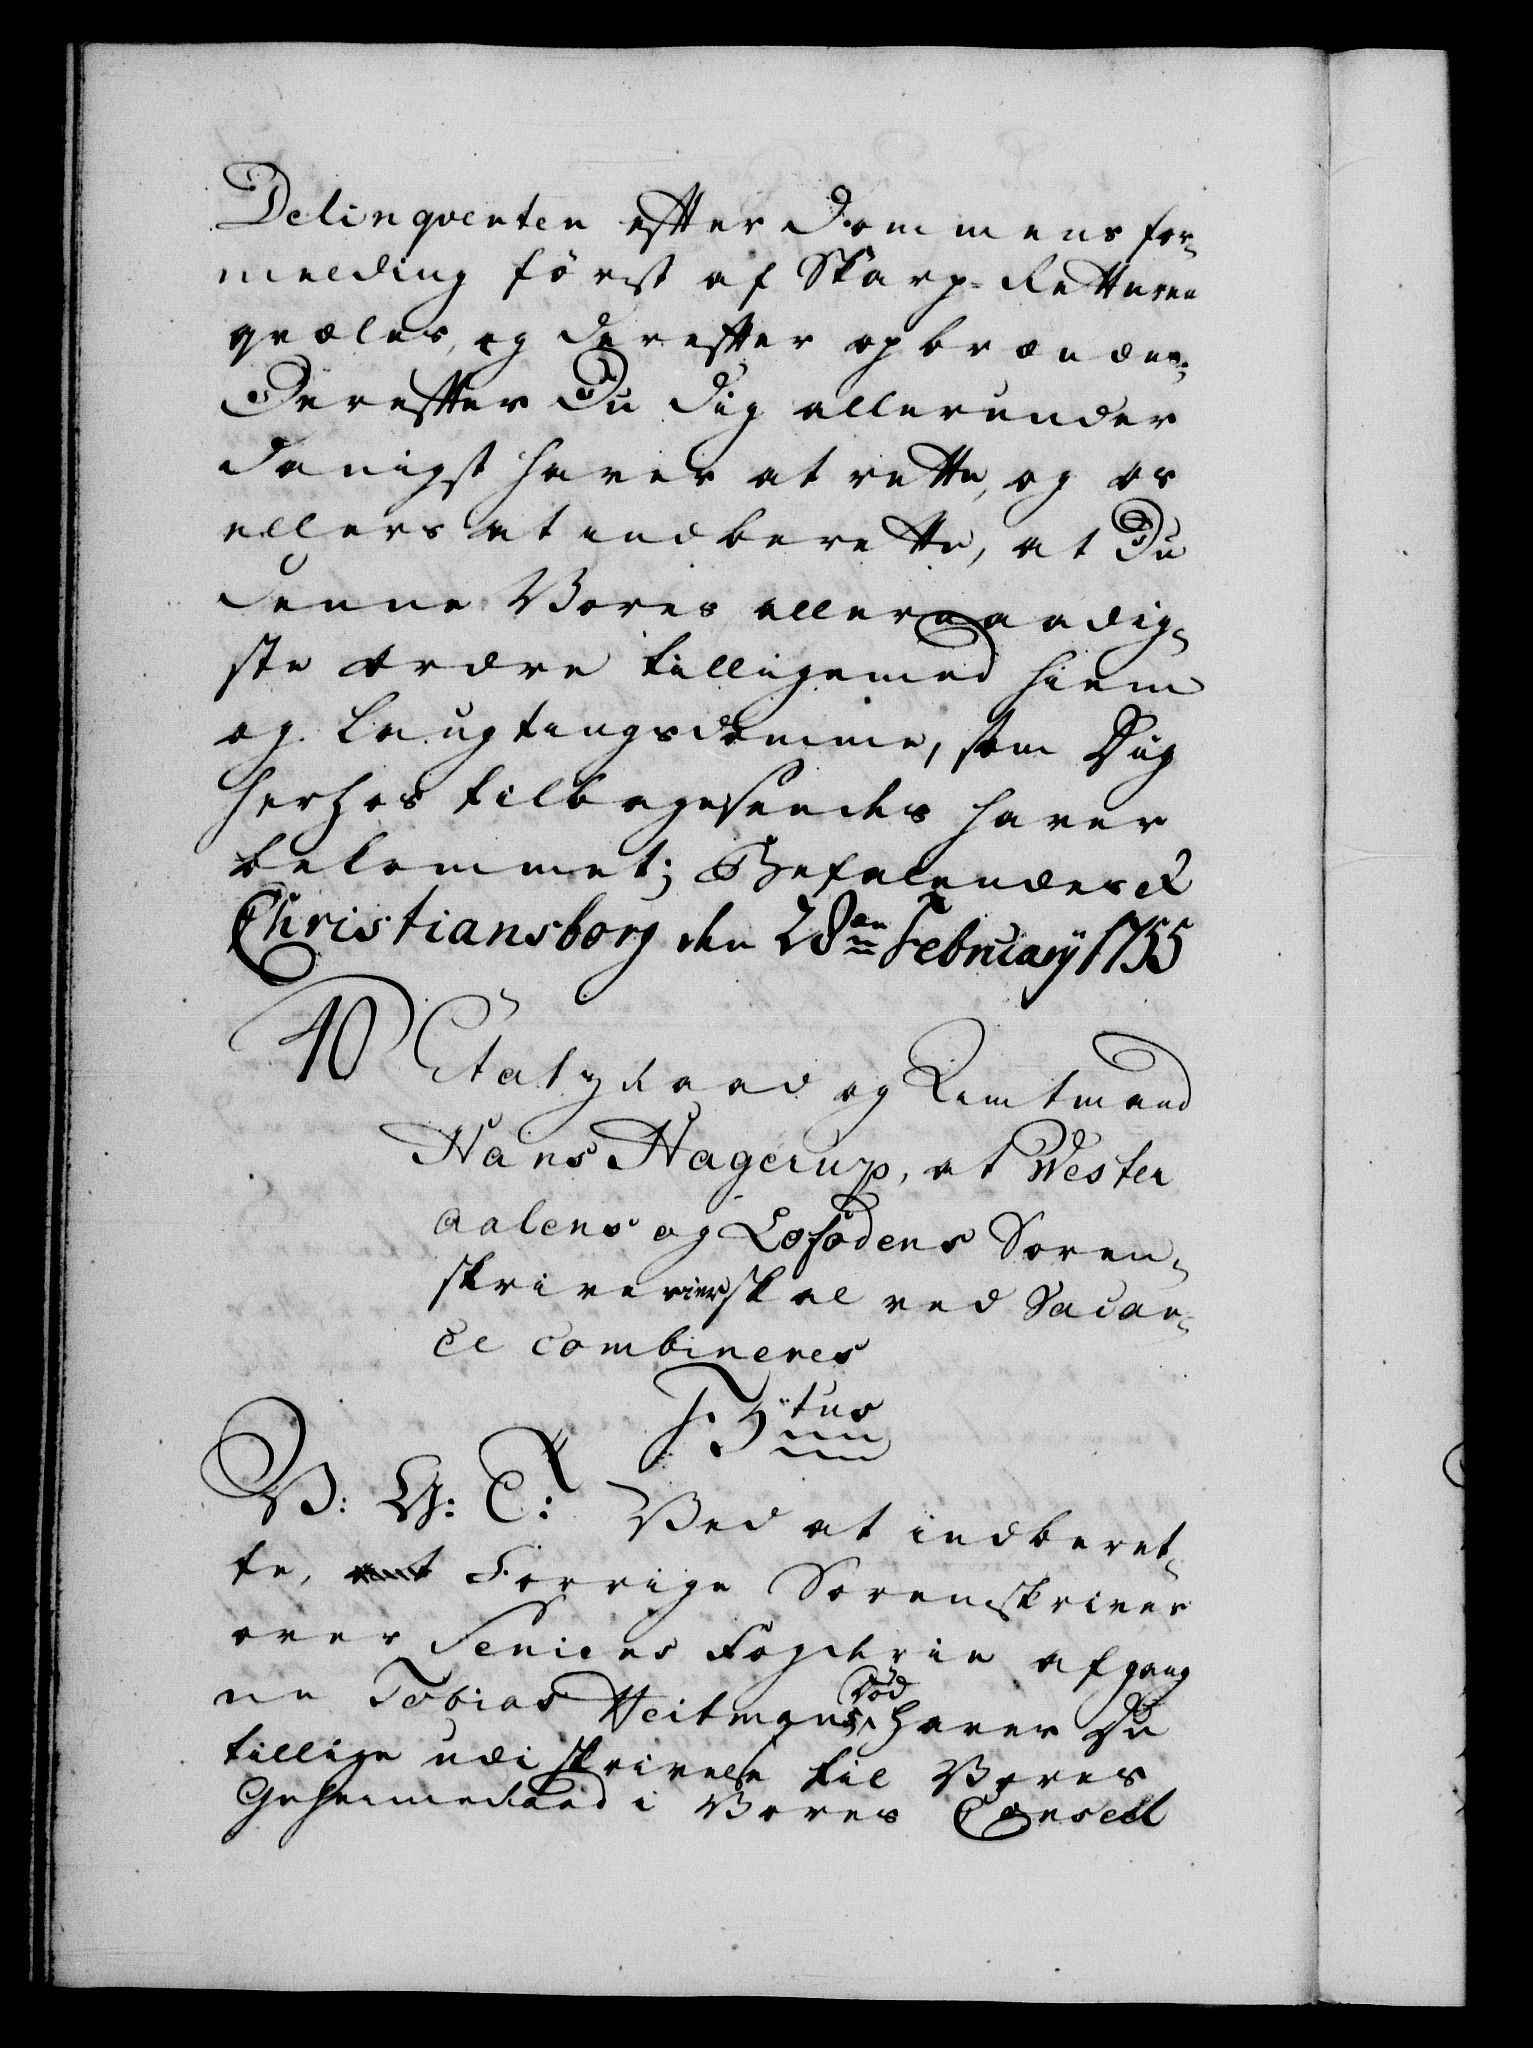 Delinqventen efter Dommens for¬
melding först af Skarp-Retteren
qvæles, og derefter opbrændes.
Derefter Du dig allerunder
danigst haver at rette, og os
ellers at indberette, at Du
denne Vores allernaadig¬
ste Ordre tilligemed Hiem
og Laugtingsdomme, som Dig
herhos tilbagesendes haver
bekommet; Befalendes &
Christiansborg den 28de February 1755
40 Etatzraad og Amtmand
Hans Hagerup, at Wester
aalens og Lofodens Soren¬
skriverier skal ved Vacan¬
ce combineres
F. 5tus
V: G: T: Ved at indberet¬
te, forrige Sorenskriver
over Seniens Fogderie afgang
ne Tobias Heitmans Död haver Du
tillige udi skrivelse til Vores
Geheimeraad i Vores Conseil